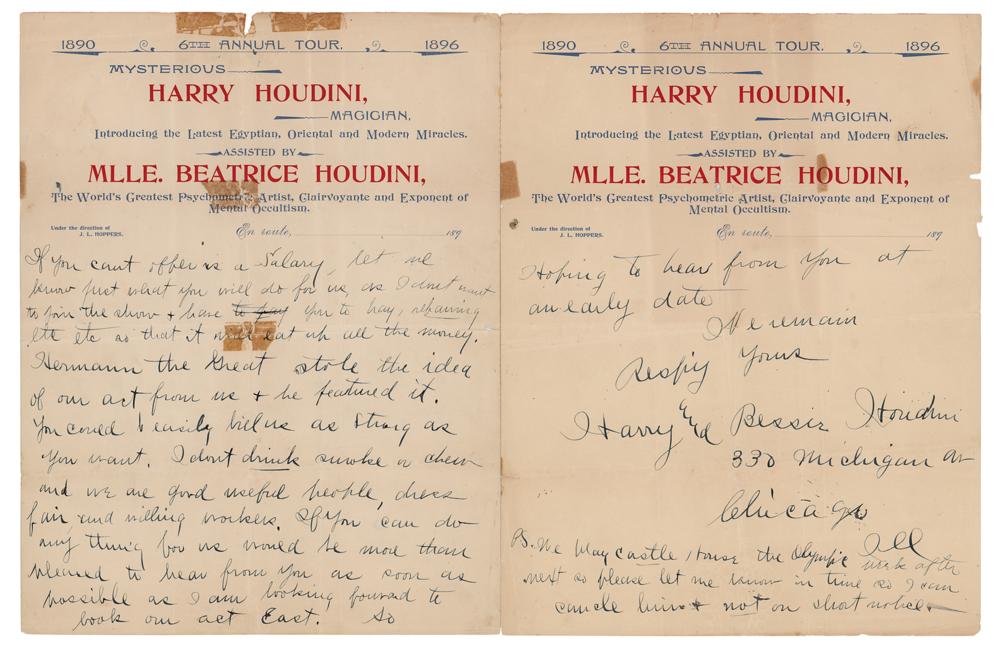 1890 6TH ANNUAL TOUR. 1896
MYSTERIOUS
HARRY HOUDINI,
MAGICIAN,
Introducing the Latest Egyptian, Oriental and Modern Miracles.
ASSISTED BY
MLLE. BEATRICE HOUDINI,
The World's Greatest Psychometric Artist, Clairvoyante and Exponent of
Mental Occultism.
Under the direction of
J. L. HOPPERS.
En route, 189
If you cant offer us a Salary, let me
know just what you will do for us, as I dont want
to join the show & have to pay you to hay, repairing
etc etc so that it will eat up all the money.
Hermann the Great stole the idea
of our act from us & he featured it.
You could easily bill us as Strong as
You want. I dont drink smoke or chew
and we are good useful people, dress
fair and willing workers. If you can do
any thing for us would be mod than
pleased to hear from you as soon as
possible as I am looking forward to
book our act East. So
1890 6TH ANNUAL TOUR. 1896
MYSTERIOUS
HARRY HOUDINI,
MAGICIAN,
Introducing the Latest Egyptian, Oriental and Modern Miracles.
ASSISTED BY
MLLE. BEATRICE HOUDINI,
The World's Greatest Psychometric Artist, Clairvoyante and Exponent of
Mental Occultism.
Under the direction of
J. L. HOPPERS.
En route, 189
Hoping to hear from you at
an early date
We remain
Respy Yours
Harry and Bessie Houdini
330 Michigan Av
Chicago
PS. We play castle, House the Olympic Ill week after
next so please let me know in time so I can
cancle him & not on short notice